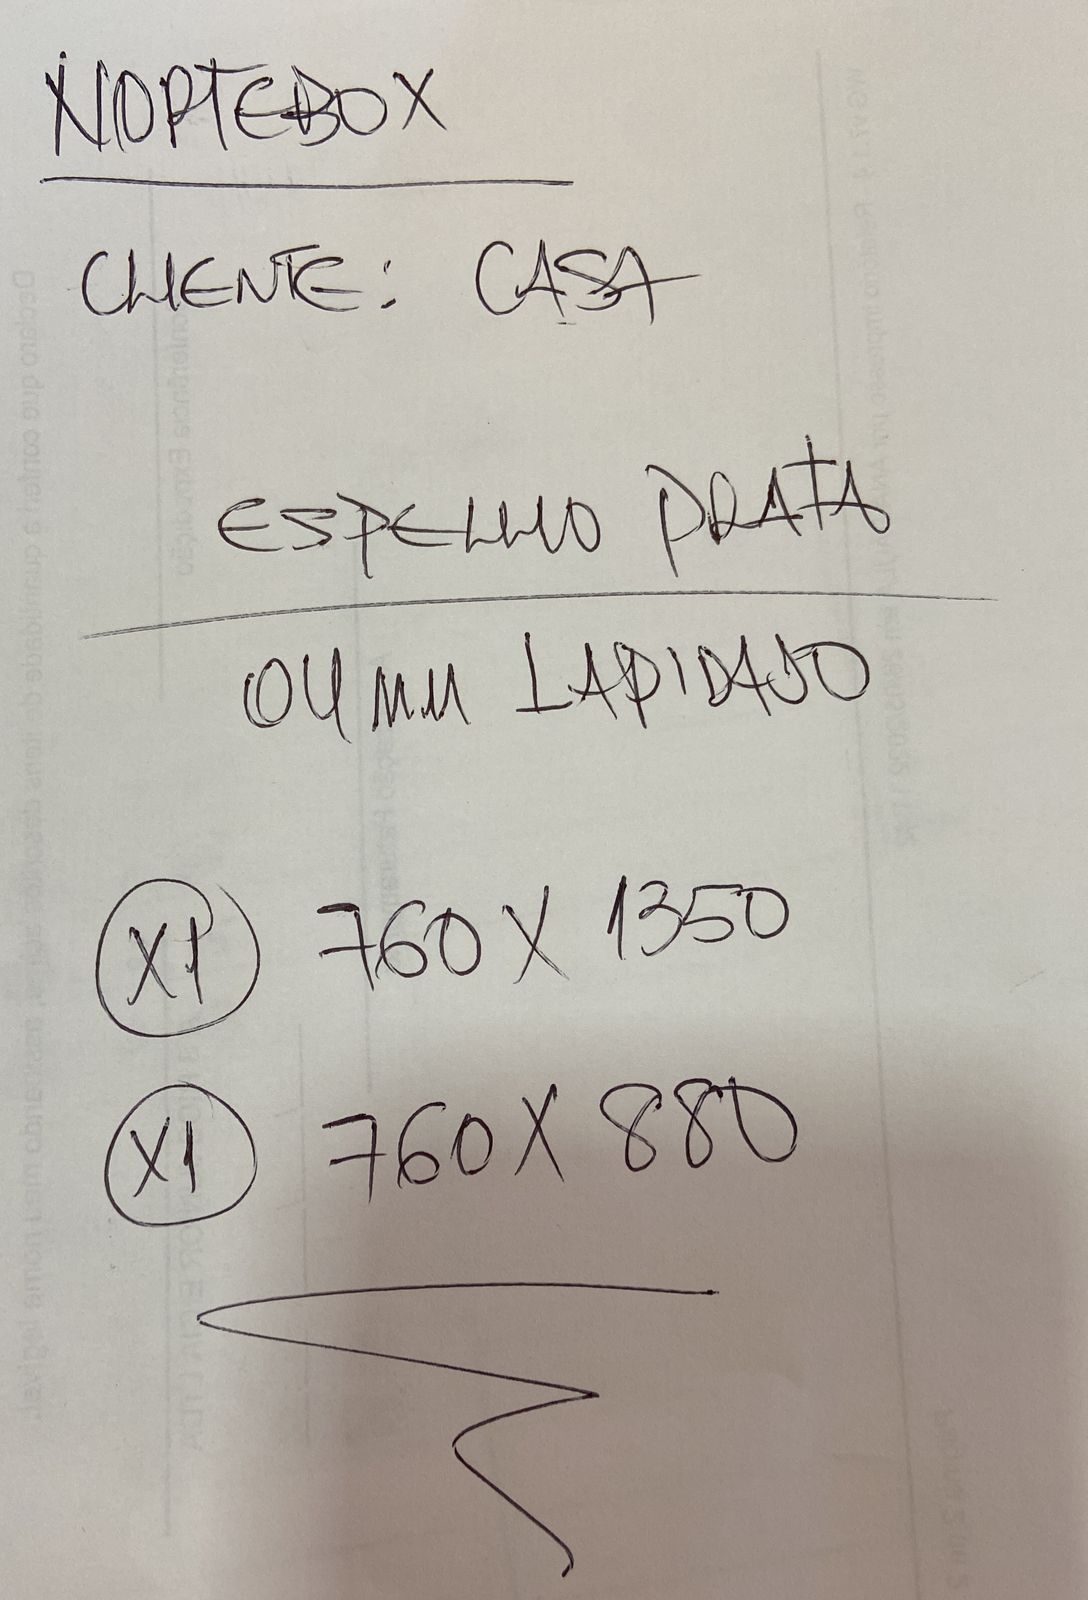 NORTEBOX
CLIENTE: CASA
ESPELHO PRATA
04MM LAPIDADO
X1 760 X 1350
X1 760 X 880